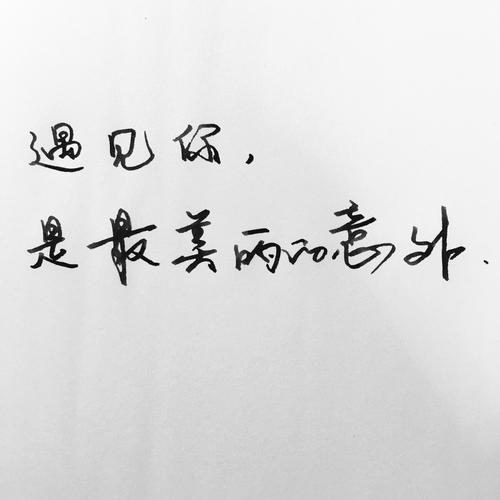 遇见你,
是最美丽的意外.